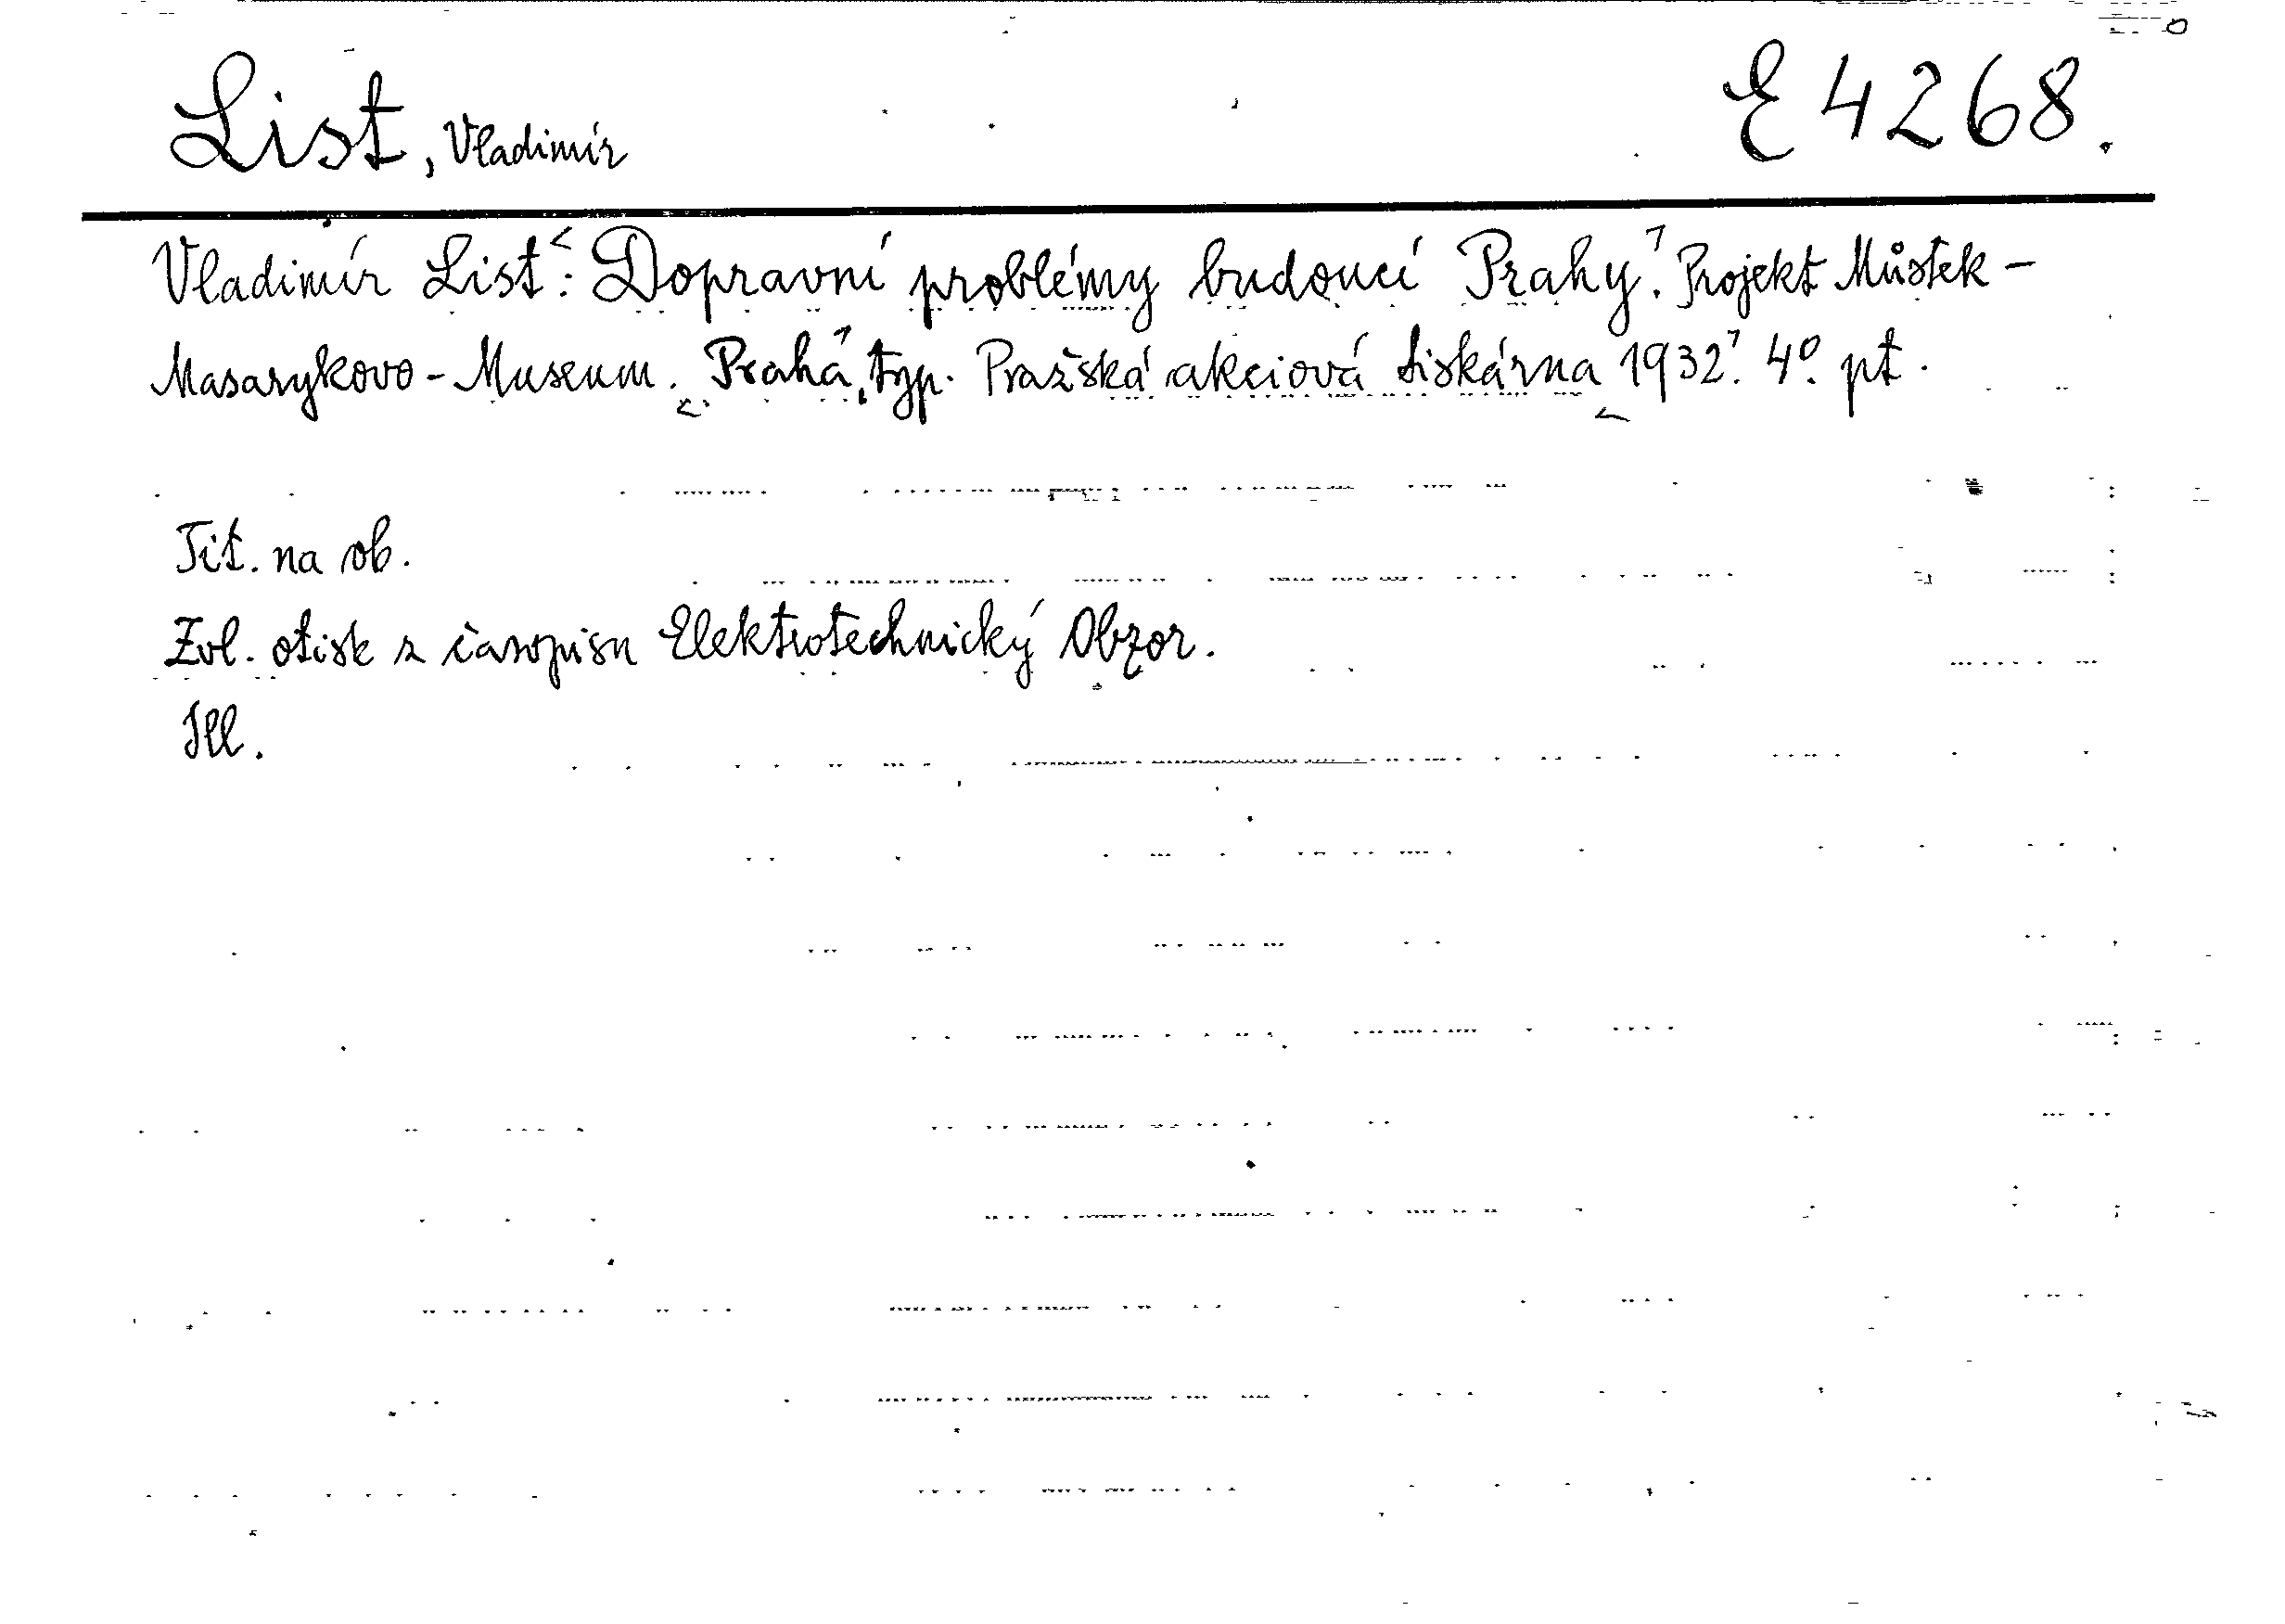 List, Vladimír
E 4268.
Vladimír List: Dopravní problémy budoucí Prahy. Projekt Můstek -
Masarykovo - Museum. Praha, typ. Pražská akciová tiskárna 1932. 4° pt.
Tit. na ob.
Zvl. otisk z časopisu Elektrotechnický Obzor.
Ill.